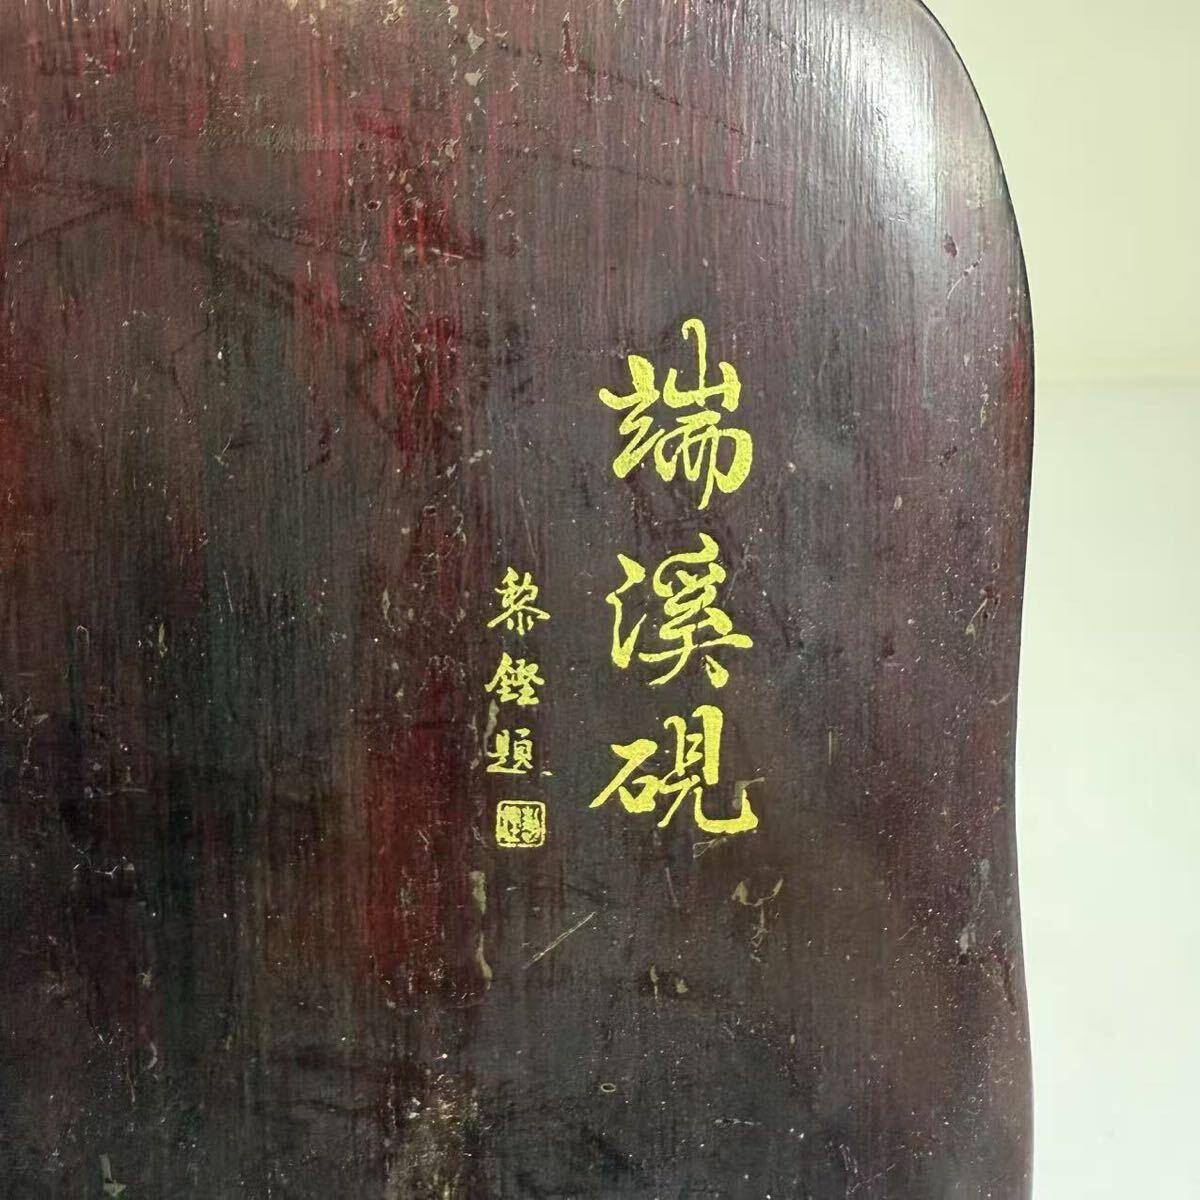 端溪硯
黎鏗題